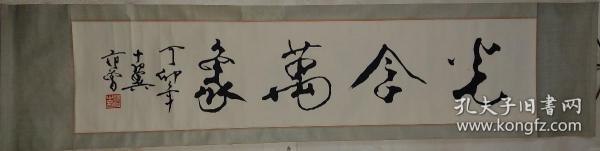 光含萬象
丁卯年
十翼
范曾
孔夫子旧书网
www.kongfz.com